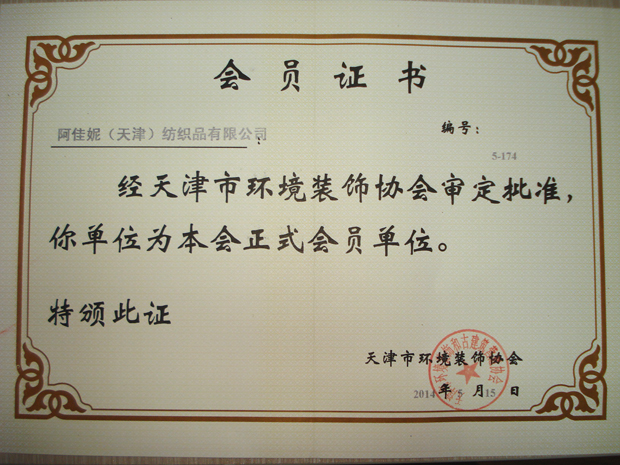 会员证书
阿佳妮（天津）纺织品有限公司：
编号：
5-174
经天津市环境装饰协会审定批准，
你单位为本会正式会员单位。
特颁此证
天津市环境装饰协会
2014年5月15日